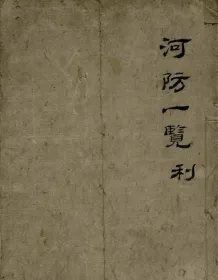 河防一覧利